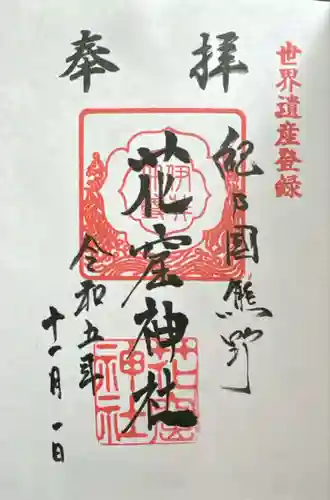 世界遺産登録
奉拝
紀の国熊野
花窟神社
令和五年
十一月一日
花窟
神社